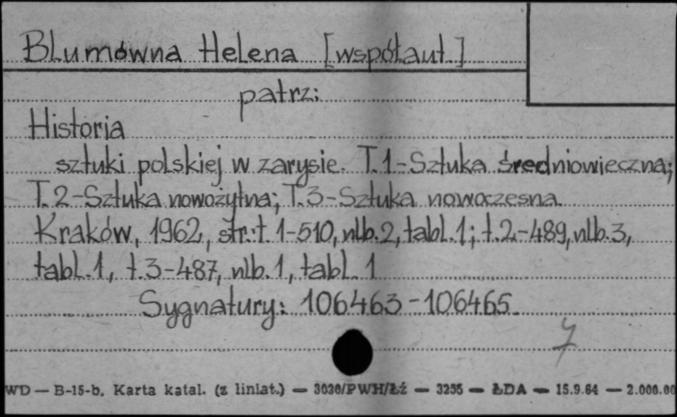 Blumówna Helena [współaut.]
patrz:
Historia
sztuki polskiej w zarysie. T.1-Sztuka średniowieczna;
T.2-Sztuka nowożytna; T.3-Sztuka nowoczesna.
Kraków, 1962, str.: t.1-510, nlb.2, tabl.1; t.2-489, nlb.3,
tabl.1, t.3-487, nlb.1, tabl.1
Sygnatury: 106463-106465.
7
WD — B-15-b. Karta katal. (z liniat.) — 3030/PWH/Łź — 3255 — ŁDA — 15.9.64 — 2.000.00